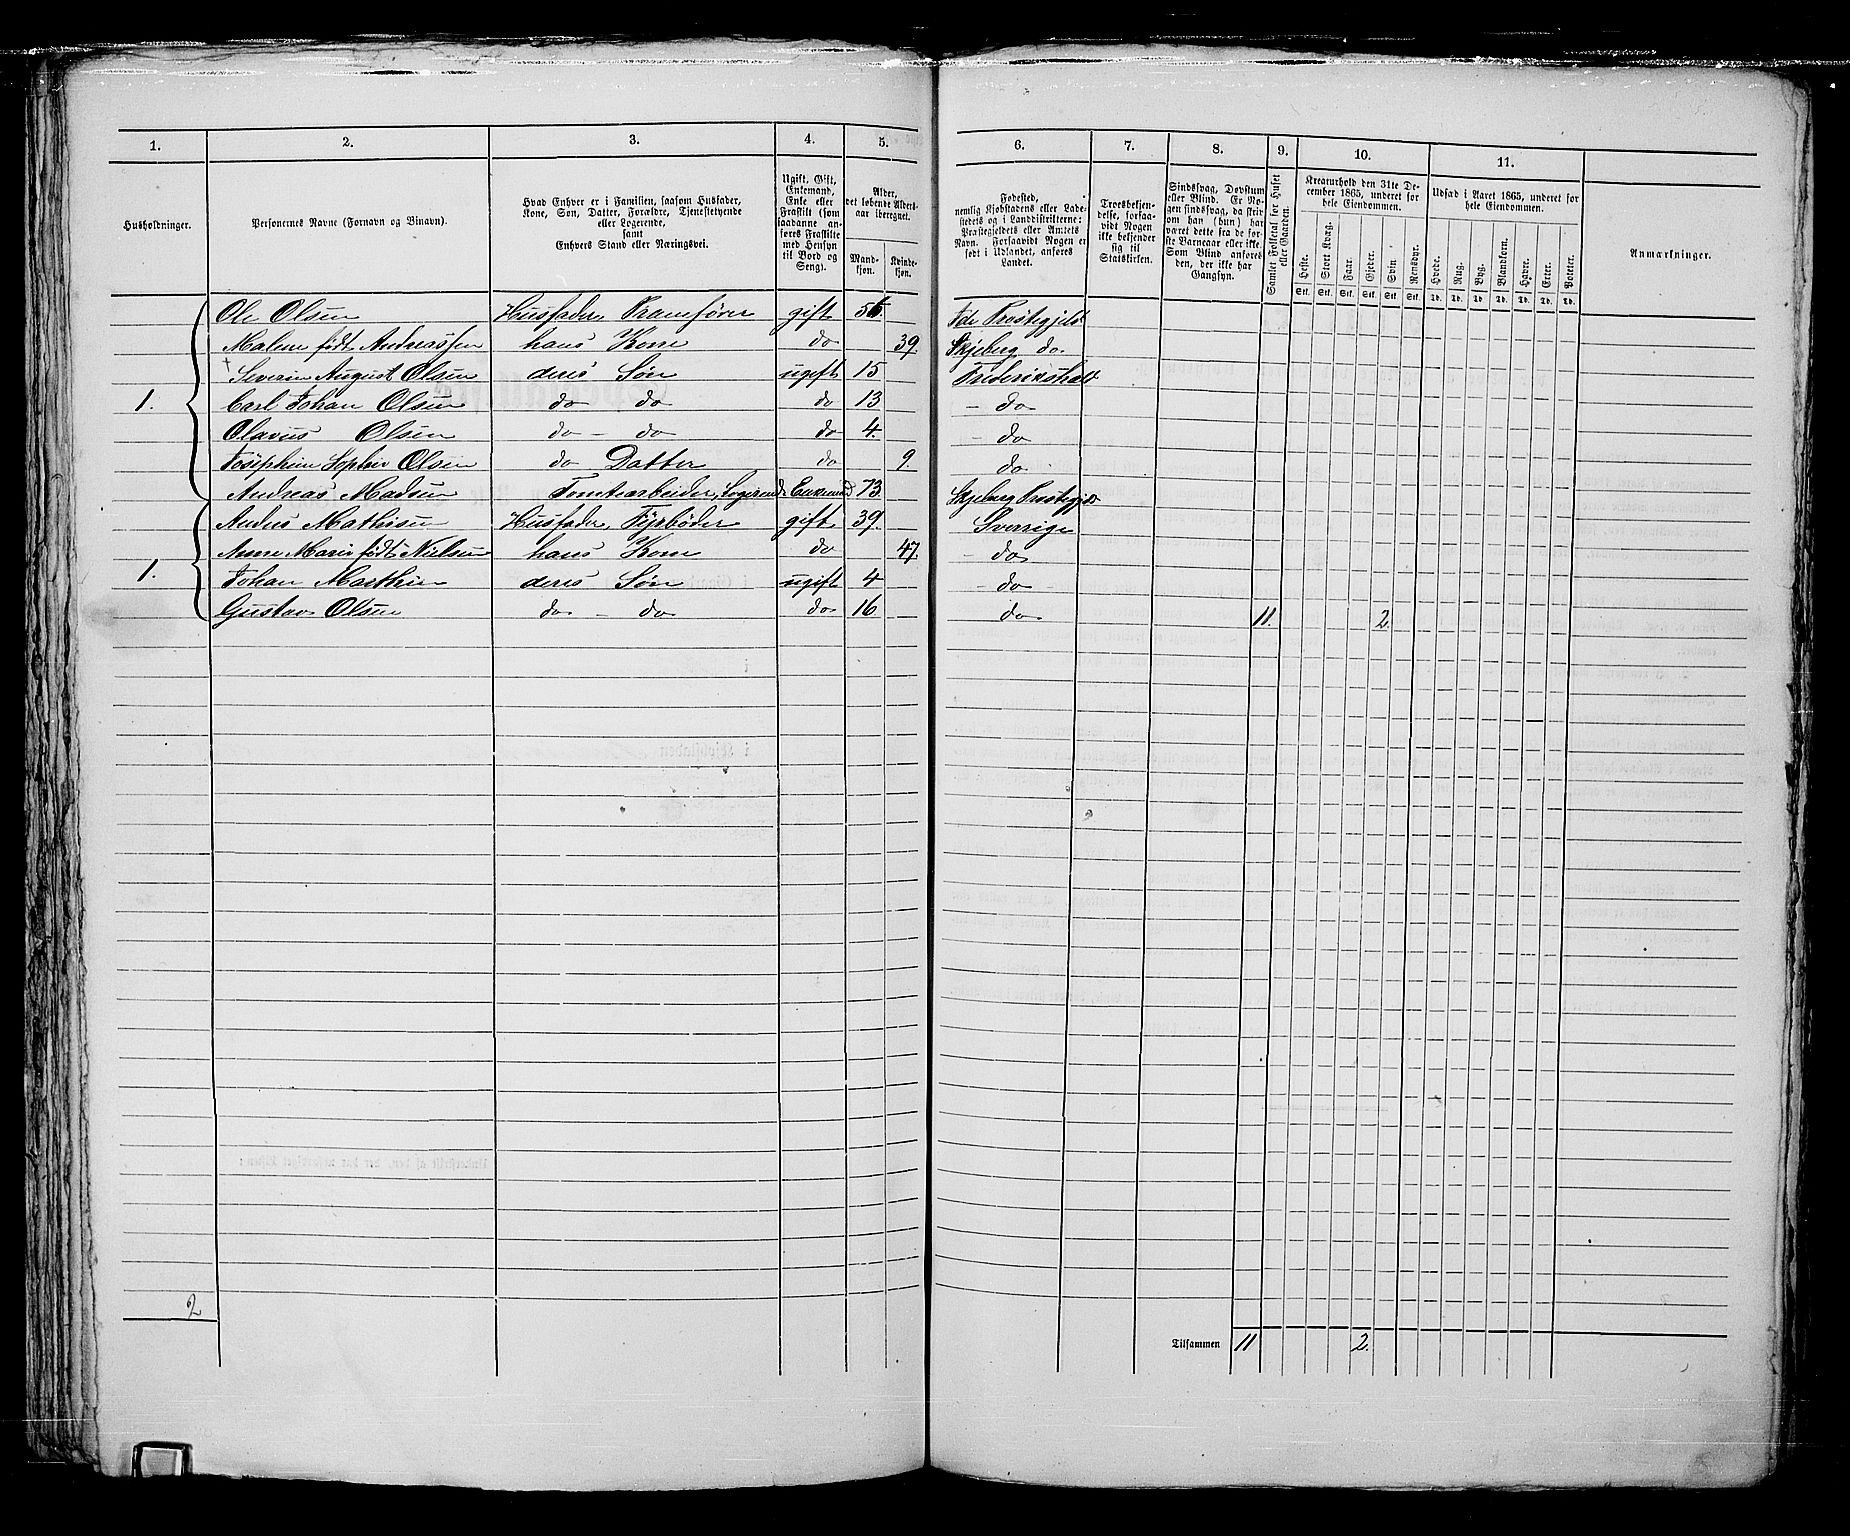 1. 2. 3. 4. 5. 6. 7. 8. 9. 10. 11.
Husholdninger.
Personernes Navne (Fornavn og Binavn).
Hvad Enhver er i Familien, saasom Husfader,
Kone, Søn, Datter, Forældre, Tjenestetyende
eller Logerende,
samt
Enhvers Stand eller Næringsvei.
Ugift, Gift,
Enkemand,
Enke eller
Fraskilt (som
saadanne an-
føres Fraskilte
med Hensyn
til Bord og
Seng).
Alder,
det løbende Alders-
aar iberegnet.
Mand-
kjøn.
Kvinde-
kjøn.
Fødested,
nemlig Kjøbstadens eller Lade-
stedets og i Landdistrikterne:
Præstegjeldets eller Amtets
Navn. Forsaavidt Nogen er
født i Udlandet, anføres
Landet.
Troesbekjen-
delse, forsaa-
vidt Nogen
ikke bekjender
sig til
Statskirken.
Sindssvag, Døvstum
eller Blind. Er No-
gen sindssvag, da skri-
ves, om han (hun) har
været dette fra de før-
ste Barneaar eller ikke.
Som Blind anføres
den, der ikke har
Gangsyn.
Samlet Folketal for Huset
eller Gaarden.
Kreaturhold den 31te De-
cember 1865, underet for
hele Eiendommen.
Heste. Stort Kvæg. Faar. Gjeder. Svin Rensdyr.
Stk. Stk. Stk. Stk. Stk. Stk.
Udsæd i Aaret 1865, underet for
hele Eiendommen.
Hvede. Rug. Byg. Blandkorn. Havre. Erter. Poteter.
Td. Td. Td. Td. Td. Td. Td.
Anmærkninger.
Ole Olsen Husfader, Pramfører gift 56 Ide Præstegjeld
Malene født Andreassen hans Kone do 39. Skjeberg do.
+ Severin August Olsen deres Søn ugift 15 Frederikshald
1. Carl Johan Olsen do do do 13 - do
Olavus Olsen do - do do 4. - do
Josephine Sophie Olsen do Datter do 9. do
Andreas Madsen Tomtearbeider, Logerende Enkemand 73. Skjeberg Præstegjd
Anders Mathisen Husfader, Fyrbøder gift 39. Sverrige
Anne Marie født Nielsen hans Kone do 47. - do
1. Johan Marthin deres Søn ugift 4 - do
Gustav Olsen do - do do 16 do 11. 2.
2
Tilsammen 11 2.